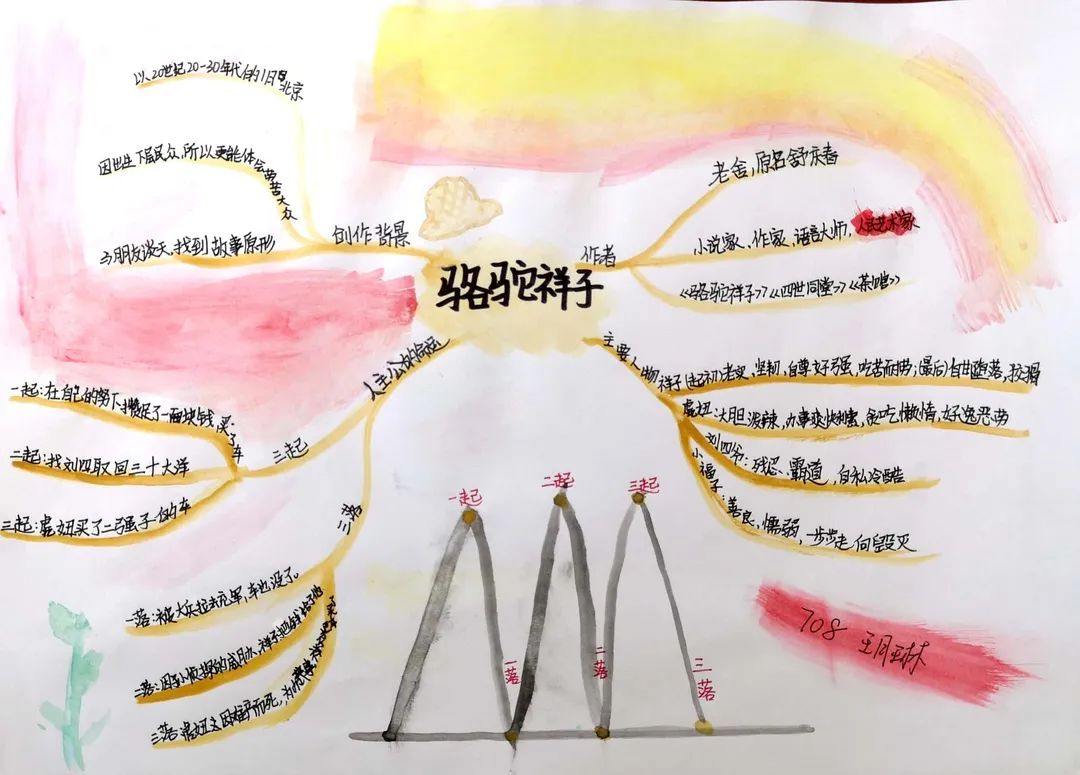 骆驼祥子
创作背景
以20世纪20-30年代的旧北京
因出生下层民众,所以更能体会劳苦大众
与朋友谈天,找到故事原形
作者
老舍,原名舒庆春
小说家、作家,语言大师,人民艺术家
《骆驼祥子》《四世同堂》《茶馆》
主要人物
祥子(起初)老实,坚韧,自尊好强,吃苦而劳;(最后)自甘堕落,狡猾
虎妞:大胆泼辣,办事爽快,贪吃懒惰,好逸恶劳
刘四爷:残忍、霸道,自私冷酷
小福子:善良,懦弱,一步步走向毁灭
人主公的命运
三起
一起:在自己的努下攒足了一百块钱,买了车
二起:找刘四取回三十大洋
三起:虎妞买了二强子的车
三落
一落:被大兵拉去充军,车也没了。
二落:因孙侦探的威胁,祥子把钱给了他
三落:虎妞又因难产而死,为
一起
二起
三起
一落
二落
三落
708